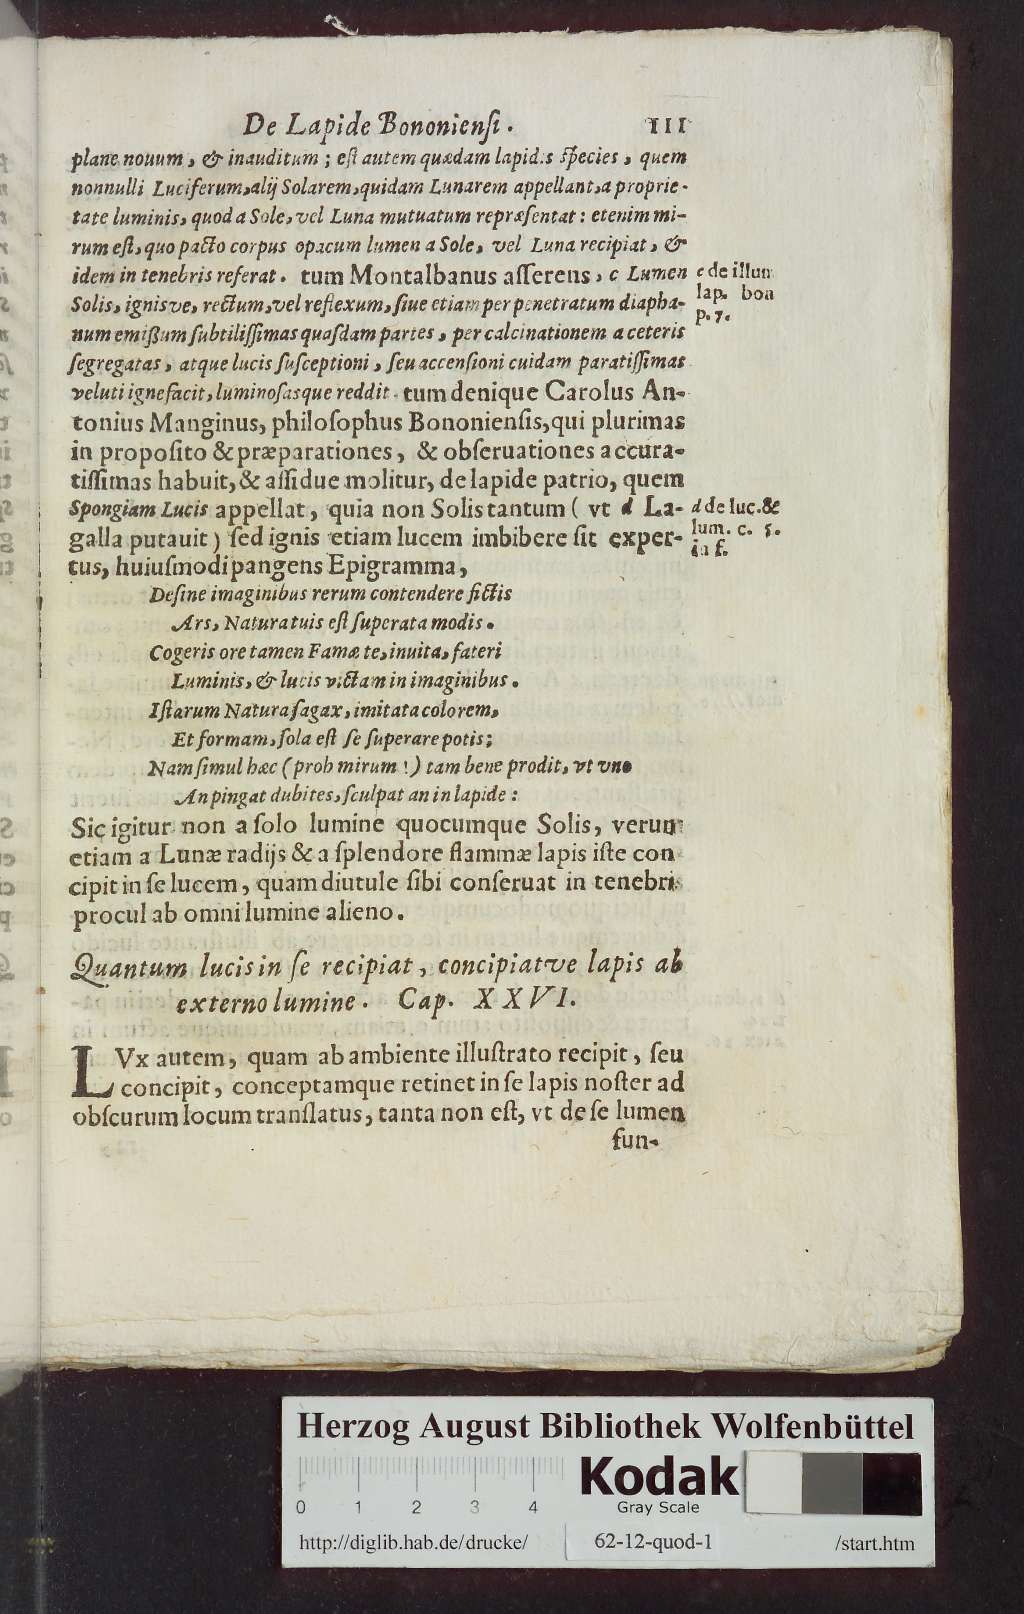 De Lapide Bononienſi. 111
plane nouum, & inauditum; eſt autem quædam lapidis ſpecies, quem
nonnulli Luciferum, alij Solarem, quidam Lunarem appellant, a proprie-
tate luminis, quod a Sole, vel Luna mutuatum repræſentat: etenim mi-
rum eſt, quo pacto corpus opacum lumen a Sole, vel Luna recipiat, &
idem in tenebris referat. tum Montalbanus aſſerens, c Lumen
c de illum
Solis, ignisve, rectum, vel reflexum, ſiue etiam per penetratum diapha-
lap. bon
p. 7.
num emiſſum ſubtiliſſimas quaſdam partes, per calcinationem a ceteris
ſegregatas, atque lucis ſuſceptioni, ſeu accenſioni cuidam paratiſſimas
veluti ignefacit, luminoſasque reddit. tum denique Carolus An-
tonius Manginus, philoſophus Bononienſis, qui plurimas
in propoſito & præparationes, & obſeruationes accura-
tiſſimas habuit, & aſſidue molitur, de lapide patrio, quem
Spongiam Lucis appellat, quia non Solis tantum ( vt d La-
d de luc. &
galla putauit ) ſed ignis etiam lucem imbibere ſit exper-
lum. c. 5.
in f.
tus, huiuſmodi pangens Epigramma,
Deſine imaginibus rerum contendere fictis
Ars, Natura tuis eſt ſuperata modis.
Cogeris ore tamen Famæ te, inuita, fateri
Luminis, & lucis victam in imaginibus.
Iſtarum Natura ſagax, imitata colorem,
Et formam, ſola eſt ſe ſuperare potis;
Nam ſimul hæc ( proh mirum! ) tam bene prodit, vt vno
An pingat dubites, ſculpat an in lapide:
Sic igitur non a ſolo lumine quocumque Solis, verum
etiam a Lunæ radijs & a ſplendore flammæ lapis iſte con
cipit in ſe lucem, quam diutule ſibi conſeruat in tenebris
procul ab omni lumine alieno.
Quantum lucis in ſe recipiat, concipiatve lapis ab
externo lumine. Cap. XXVI.
LVx autem, quam ab ambiente illuſtrato recipit, ſeu
concipit, conceptamque retinet in ſe lapis noſter ad
obſcurum locum tranſlatus, tanta non eſt, vt de ſe lumen
fun-
Herzog August Bibliothek Wolfenbüttel
0 1 2 3 4
Kodak
Gray Scale
http://diglib.hab.de/drucke/ 62-12-quod-1 /start.htm